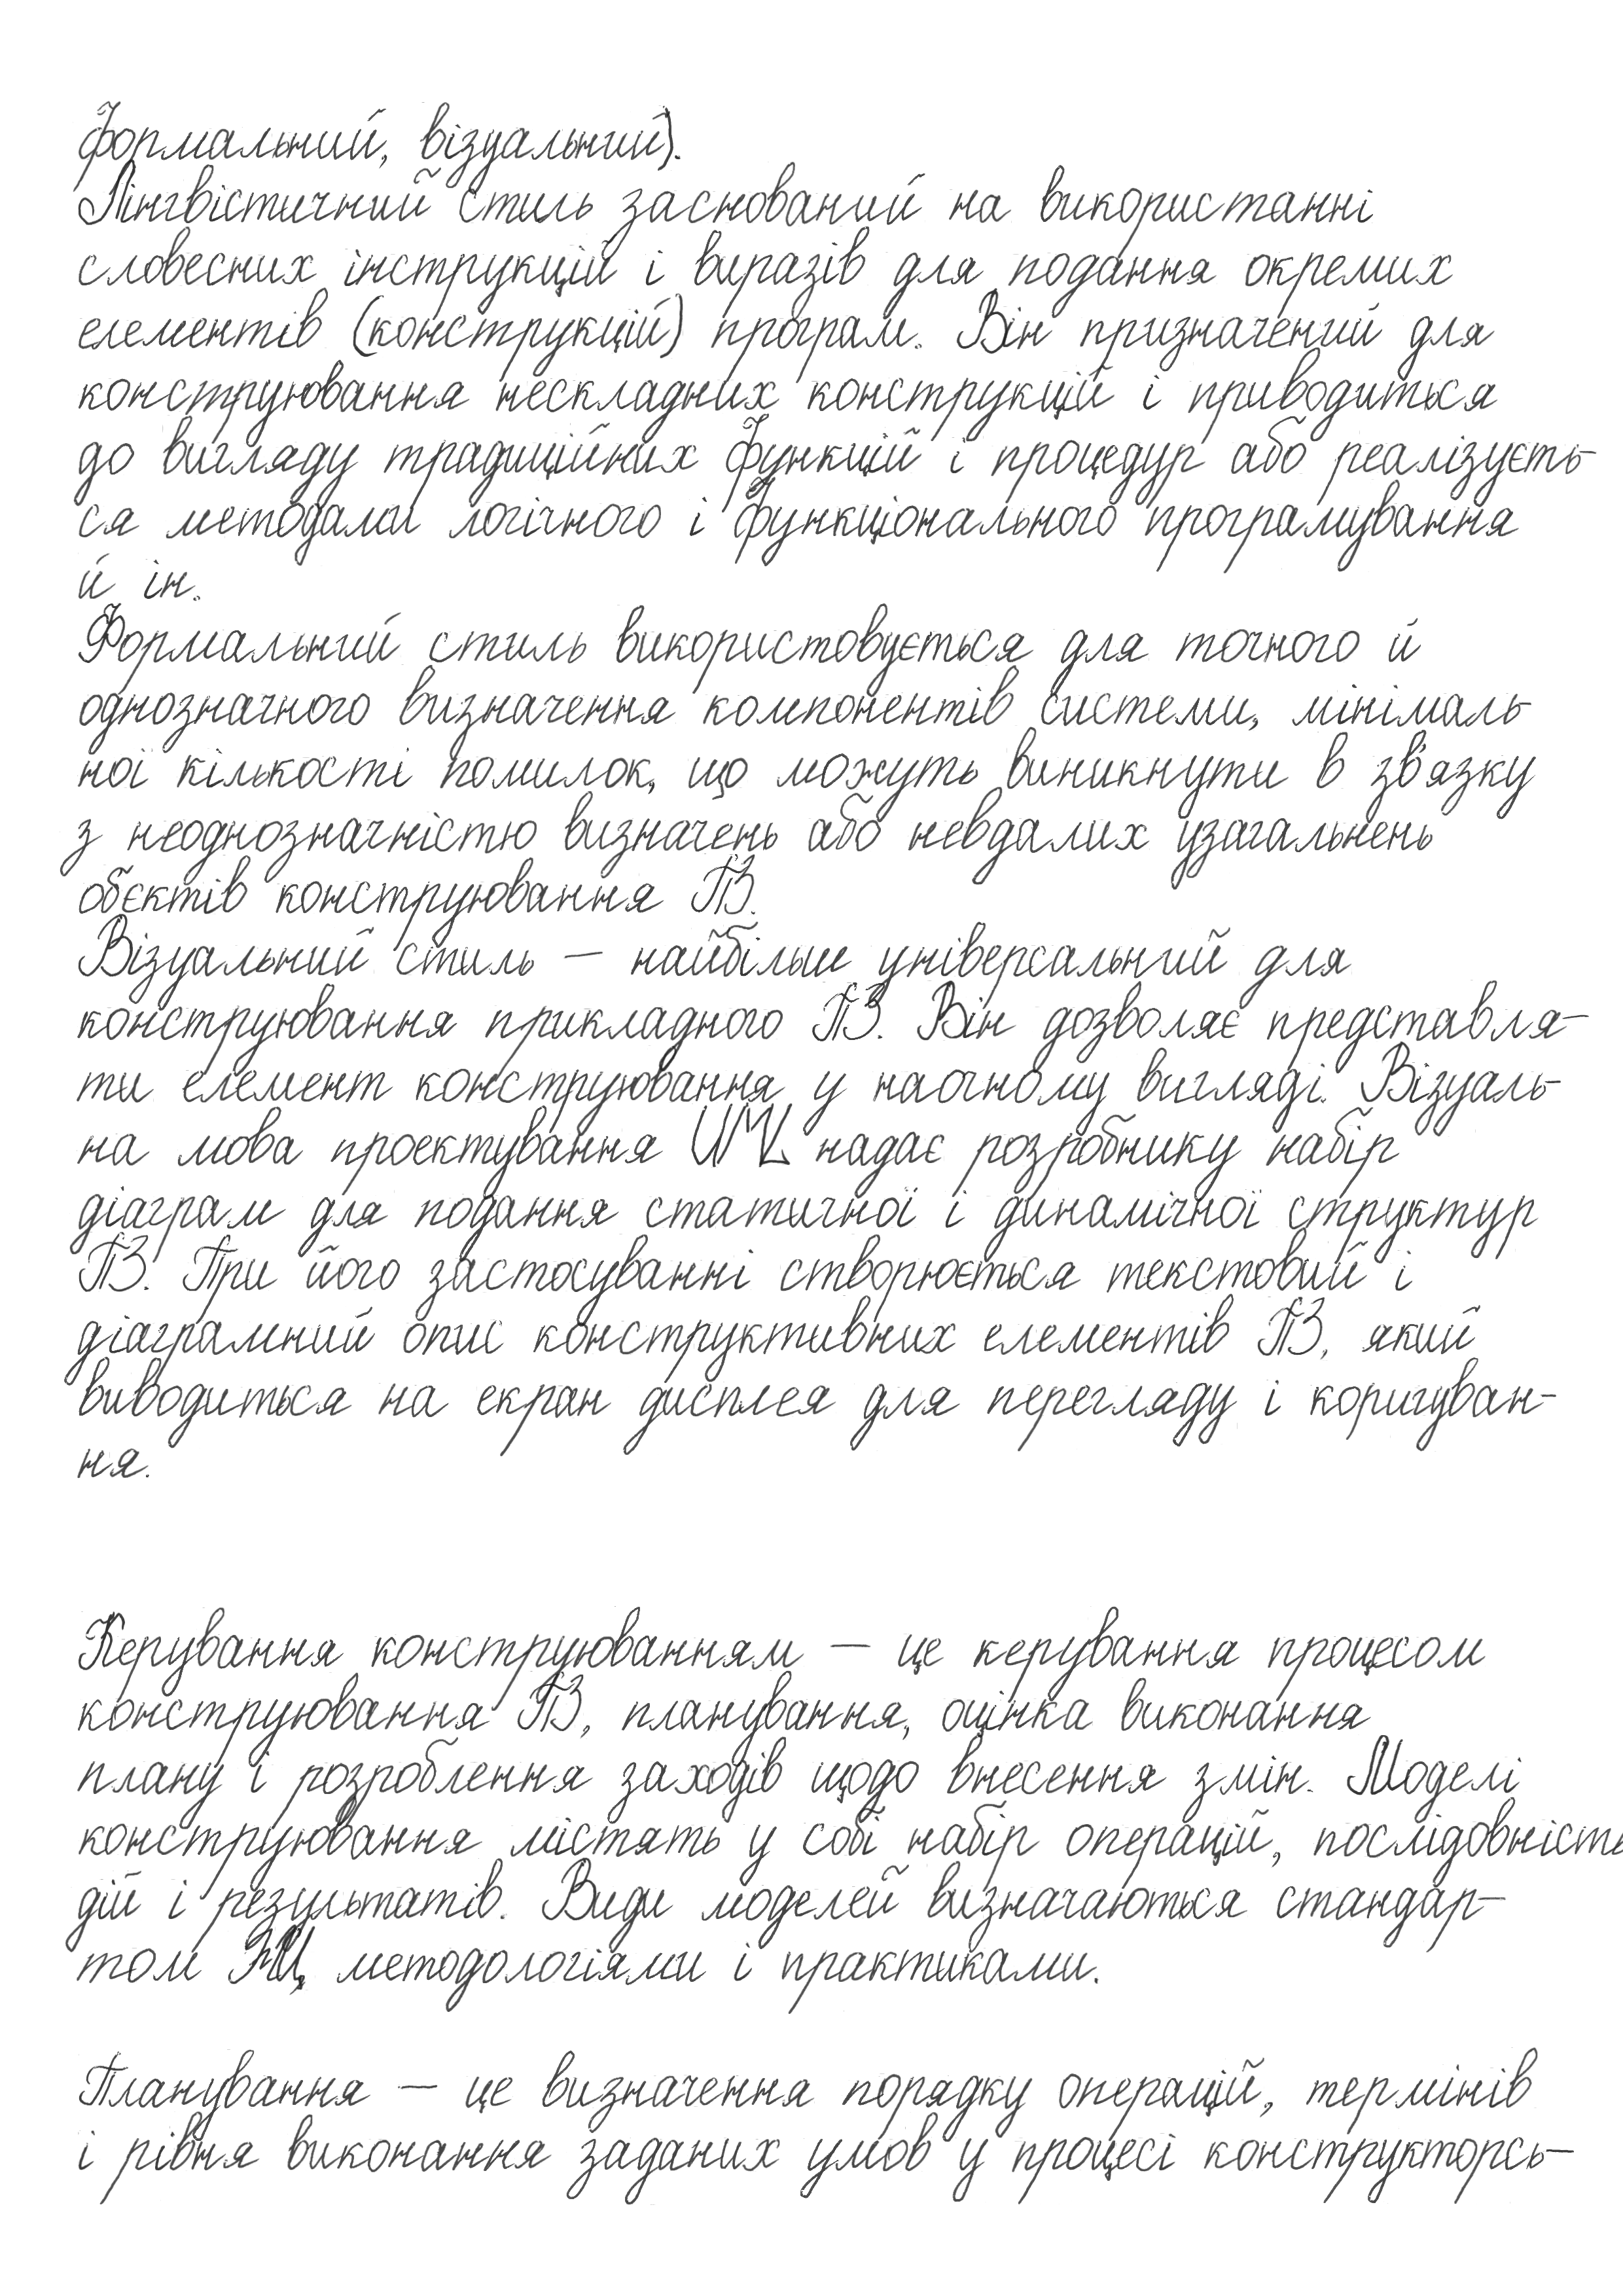 формальний, візуальний).
Лінгвістичний стиль заснований на використанні
словесних інструкцій і виразів для подання окремих
елементів (конструкцій) програм. Він призначений для
конструювання нескладних конструкцій і приводиться
до вигляду традиційних функцій і процедур або реалізуєть-
ся методами логічного і функціонального програмування
й ін.
Формальний стиль використовується для точного й
однозначного визначення компонентів системи, мінімаль-
ної кількості помилок, що можуть виникнути в зв'язку
з неоднозначністю визначень або невдалих узагальнень
обєктів конструювання ПЗ.
Візуальний стиль — найбільш універсальний для
конструювання прикладного ПЗ. Він дозволяє представля-
ти елемент конструювання у наочному вигляді. Візуаль-
на мова проектування UML надає розробнику набір
діаграм для подання статичної і динамічної структур
ПЗ. При його застосуванні створюється текстовий і
діаграмний опис конструктивних елементів ПЗ, який
виводиться на екран дисплея для перегляду і коригуван-
ня.
Керування конструюванням — це керування процесом
конструювання ПЗ, планування, оцінка виконання
плану і розроблення заходів щодо внесення змін. Моделі
конструювання містять у собі набір операцій, послідовність
дій і результатів. Види моделей визначаються стандар-
том методологіями і практиками.
Планування — це визначення порядку операцій, термінів
і рівня виконання заданих умов у процесі конструкторсь-